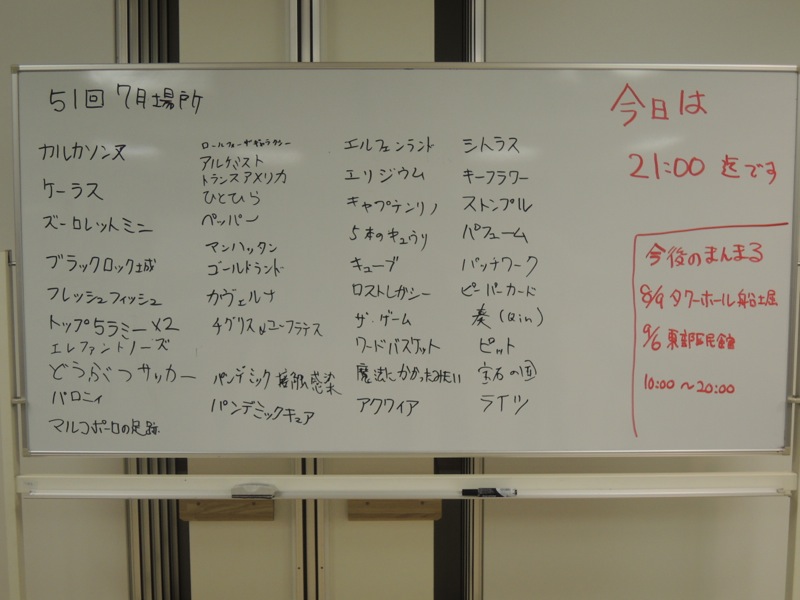 51回 7月場所
カルカソンヌ
ケーラス
ズーロレットミニ
ブラックロック城
フレッシュフィッシュ
トップ5ラミー×2
エレファントノーズ
どうぶつサッカー
バロニィ
マルコポーロの足跡
ロールフォーザギャラクシー
アルケミスト
トランスアメリカ
ひとひら
ペッパー
マンハッタン
ゴールドランド
カヴェルナ
チグリス&ユーフラテス
パンデミック接触感染
パンデミックキュア
エルフェンランド
エリジウム
キャプテンリノ
5本のキュウリ
キューブ
ロストレガシー
ザ・ゲーム
ワードバスケット
魔法にかかったみたい
アクワイア
シトラス
キーフラワー
ストンプル
パフューム
パッチワーク
ビーバーカード
奏(Qin)
ピット
宝石の国
ライツ
今日は
21:00 迄です
今後のまんまる
8/9 タワーホール船堀
9/6 東部区民館
10:00～20:00